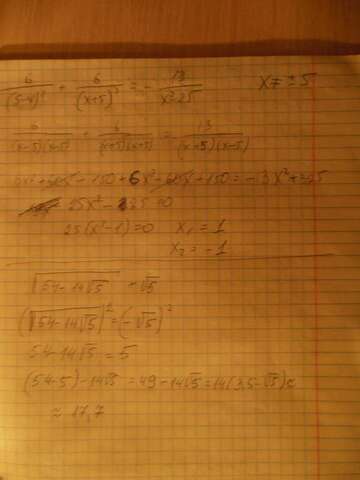 6/(5-4)² + 6/(x+5)² = - 13/(x²-25)   x ≠ ±5
6/(x-5)(x-5) + 6/(x+5)(x+5) = 13/(x+5)(x-5)
+ 6x² + 150 = - 3x² +
25x² - 25 = 0
25(x² - 1) = 0   x₁ = 1
x₂ = -1
√54-14√5 + √5
(√54-14√5)² = (-√5)²
54-14√5 = 5
(54-5) - 14√5 = 49 - 14√5 = 14(3,5-√5)
≈ 17,7